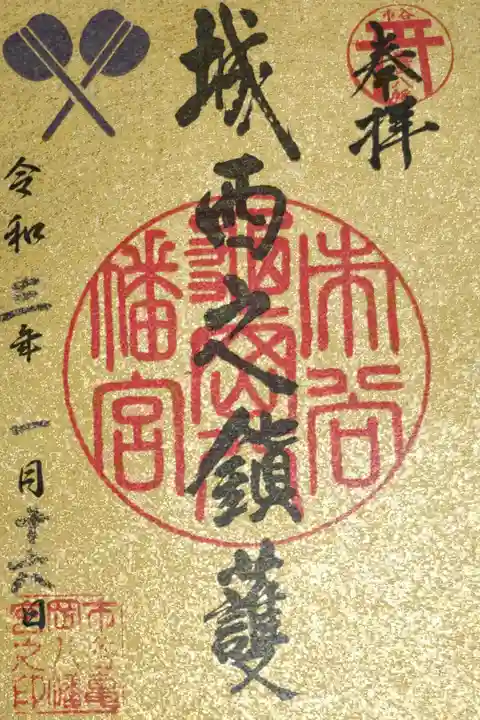 奉拝
城西之鎮護
市谷
龜岡八
幡宮
令和三年一月十六日
市谷亀
岡八幡
宮之印